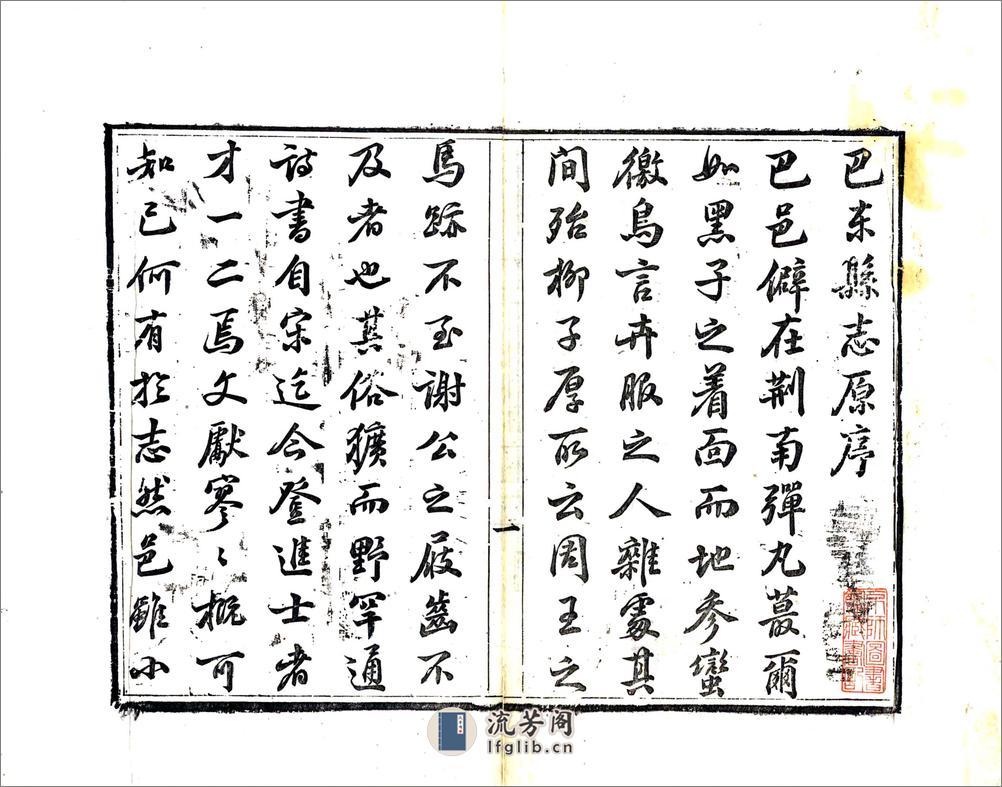 巴東縣志原序
巴邑僻在荆南彈丸蕞爾
如黑子之着面而地參蠻
徼鳥言卉服之人雜處其
間殆柳子厚所云周王之
一
馬跡不至謝公之屐齒不
及者也其俗獷而野罕通
詩書自宋迄今登進士者
才一二焉文獻寥〻概可
知已何有於志然邑雖小
流芳阁
lfglib.cn